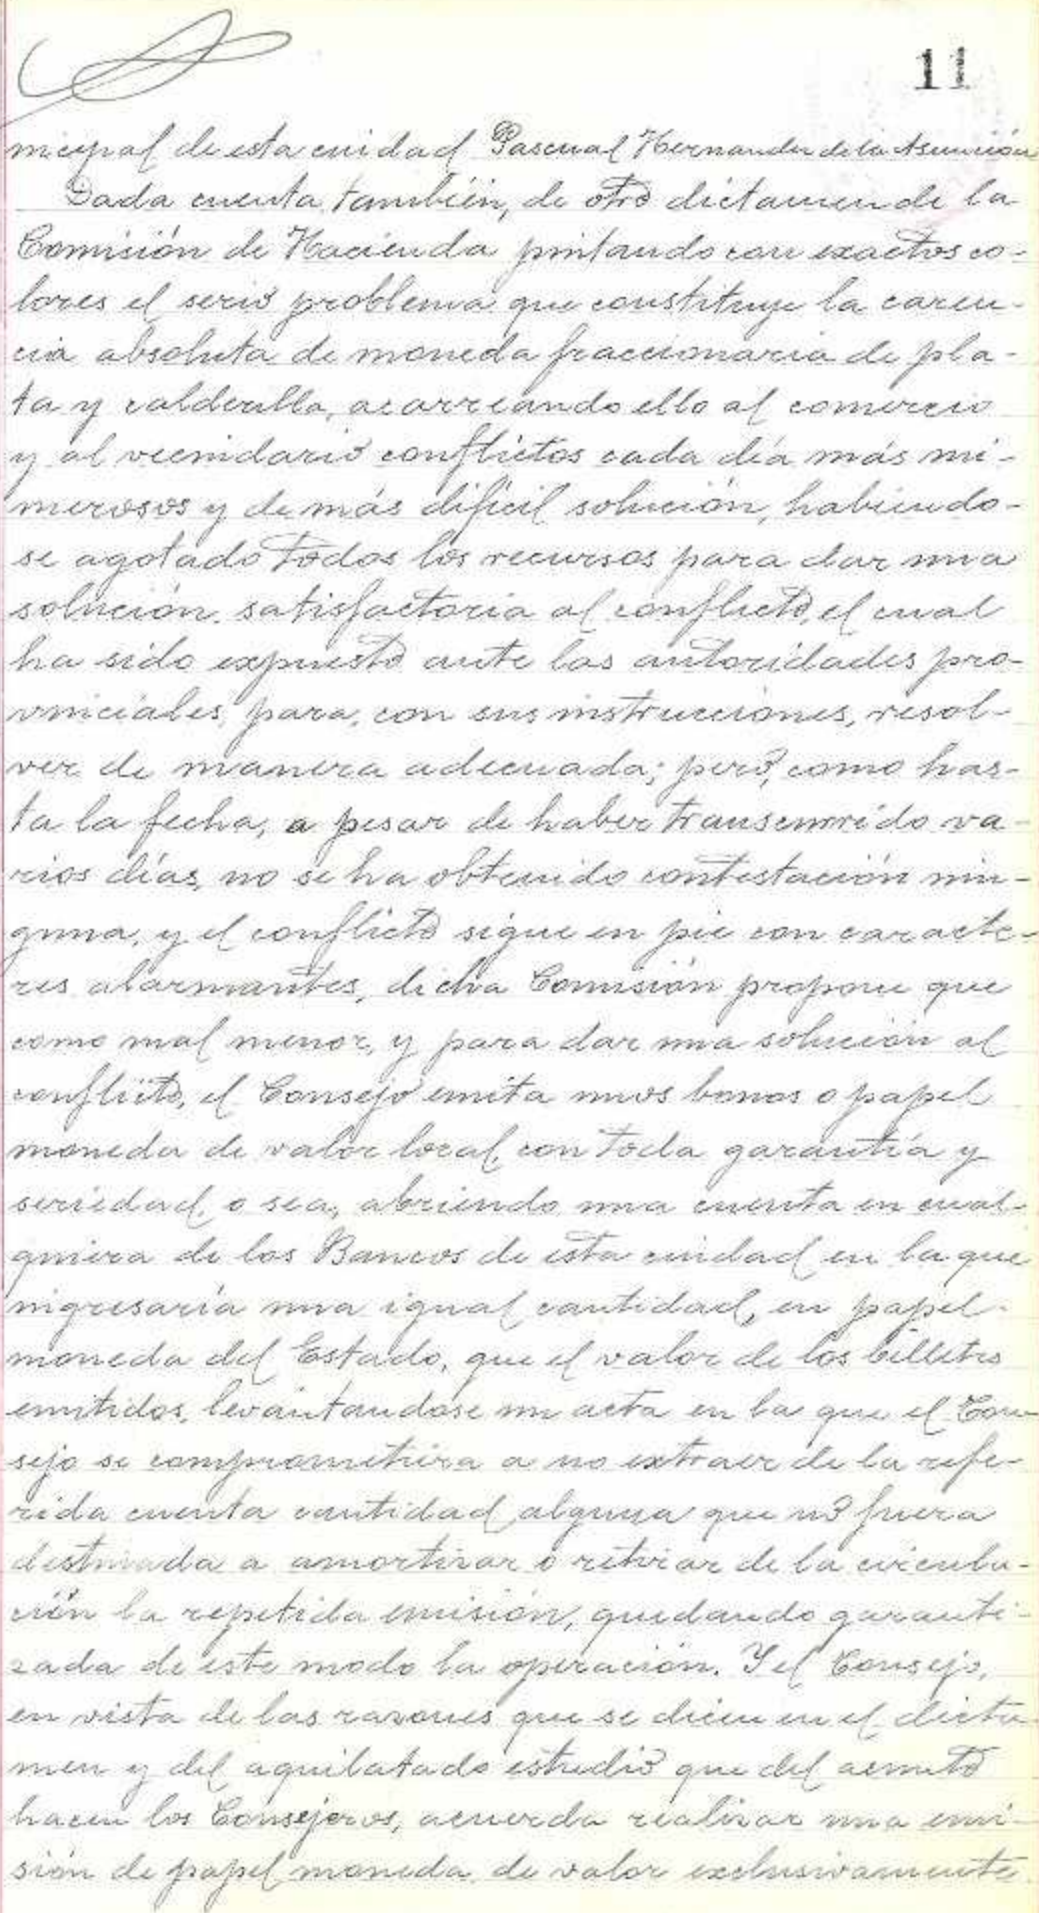 11
nicipal de esta ciudad Pascual Hernandez de la Asunción
Dada cuenta también, de otro dictamen de la
Comisión de Hacienda pintando con exactos co-
lores el serio problema que constituye la caren-
cia absoluta de moneda fraccionaria de pla-
ta y calderilla, acarreando ello al comercio
y al vecindario conflictos cada día más nu-
merosos y de más difícil solución, habiendo-
se agotado todos los recursos para dar una
solución satisfactoria al conflicto, el cual
ha sido expuesto ante las autoridades pro-
vinciales, para, con sus instrucciones, resol-
ver de manera adecuada; pero, como has-
ta la fecha, a pesar de haber transcurrido va-
rios días, no se ha obtenido contestación nin-
guna, y el conflicto sigue en pie con caracte-
res alarmantes, dicha Comisión propone que
como mal menor, y para dar una solución al
conflicto, el Consejo emita unos bonos o papel
moneda de valor local, con toda garantía y
seriedad, o sea, abriendo una cuenta en cual-
quiera de los Bancos de esta ciudad en la que
ingresaría una igual cantidad, en papel-
moneda del Estado, que el valor de los billetes
emitidos, levantandose un acta en la que el Con-
sejo se comprometiera a no extraer de la refe-
rida cuenta cantidad alguna que no fuera
destinada a amortizar o retirar de la circula-
ción la repetida emisión, quedando garanti-
zada de este modo la operación. Y el Consejo,
en vista de las razones que se dicen en el dicta-
men y del aquilatado estudio que del asunto
hacen los Consejeros, acuerda realizar una emi-
sión de papel moneda de valor exclusivamente